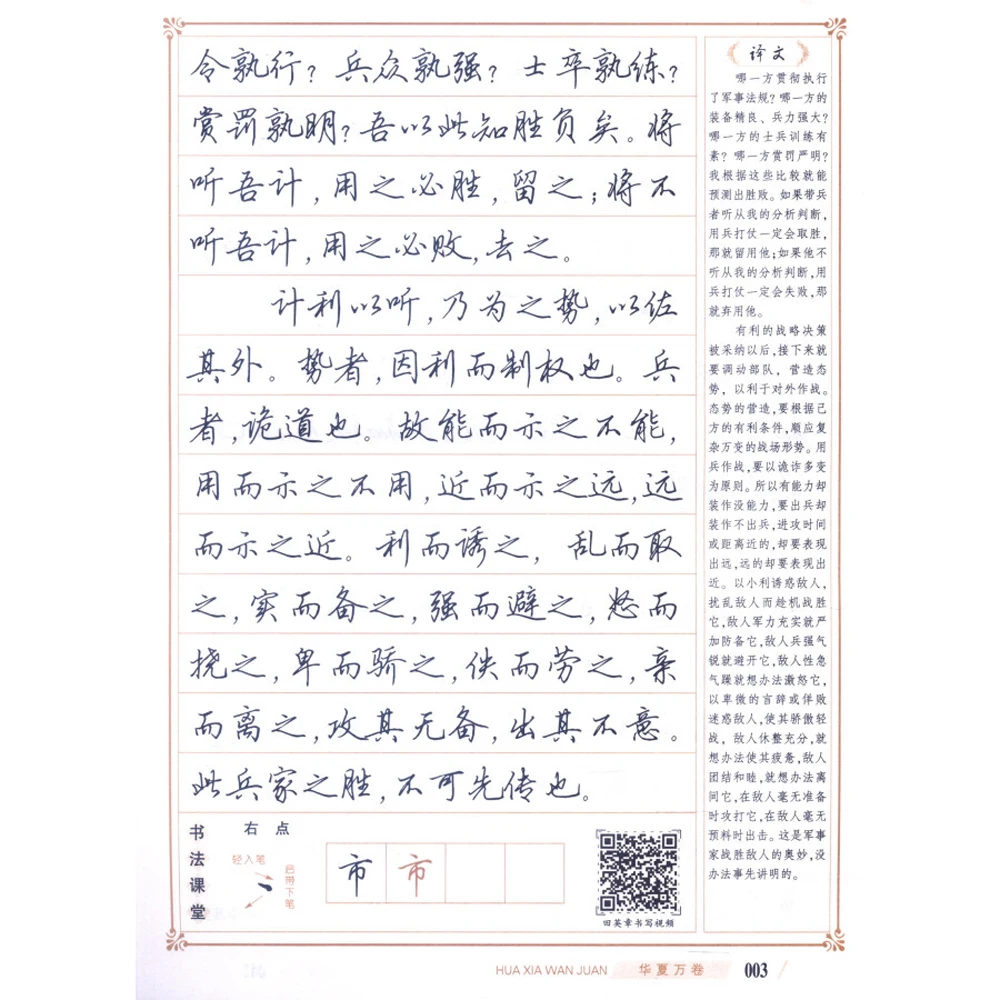 令孰行？兵众孰强？士卒孰练？
赏罚孰明？吾以此知胜负矣。将
听吾计，用之必胜，留之；将不
听吾计，用之必败，去之。
计利以听，乃为之势，以佐
其外。势者，因利而制权也。兵
者，诡道也。故能而示之不能，
用而示之不用，近而示之远，远
而示之近。利而诱之，乱而取
之，实而备之，强而避之，怒而
挠之，卑而骄之，佚而劳之，亲
而离之，攻其无备，出其不意。
此兵家之胜，不可先传也。
译文
哪一方贯彻执行
了军事法规？哪一方的
装备精良、兵力强大？
哪一方的士兵训练有
素？哪一方赏罚严明？
我根据这些比较就能
预测出胜败。如果带兵
者听从我的分析判断，
用兵打仗一定会取胜，
那就留用他；如果他不
听从我的分析判断，用
兵打仗一定会失败，那
就弃用他。
有利的战略决策
被采纳以后，接下来就
要调动部队，营造态
势，以利于对外作战。
态势的营造，要根据己
方的有利条件，顺应复
杂万变的战场形势。用
兵作战，要以诡诈多变
为原则。所以有能力却
装作没能力，要出兵却
装作不出兵，进攻时间
或距离近的，却要表现
出远，远的却要表现出
近。以小利诱惑敌人，
扰乱敌人而趁机战胜
它，敌人军力充实就严
加防备它，敌人兵强气
锐就避开它，敌人性急
气躁就想办法激怒它，
以卑微的言辞或佯败
迷惑敌人，使其骄傲轻
战，敌人休整充分，就
想办法使其疲惫，敌人
团结和睦，就想办法离
间它，在敌人毫无准备
时攻打它，在敌人毫无
预料时出击。这是军事
家战胜敌人的奥妙，没
办法事先讲明的。
书法课堂
右点
轻入笔
启带下笔
市 市
田英章书写视频
HUA XIA WAN JUAN 华夏万卷 003